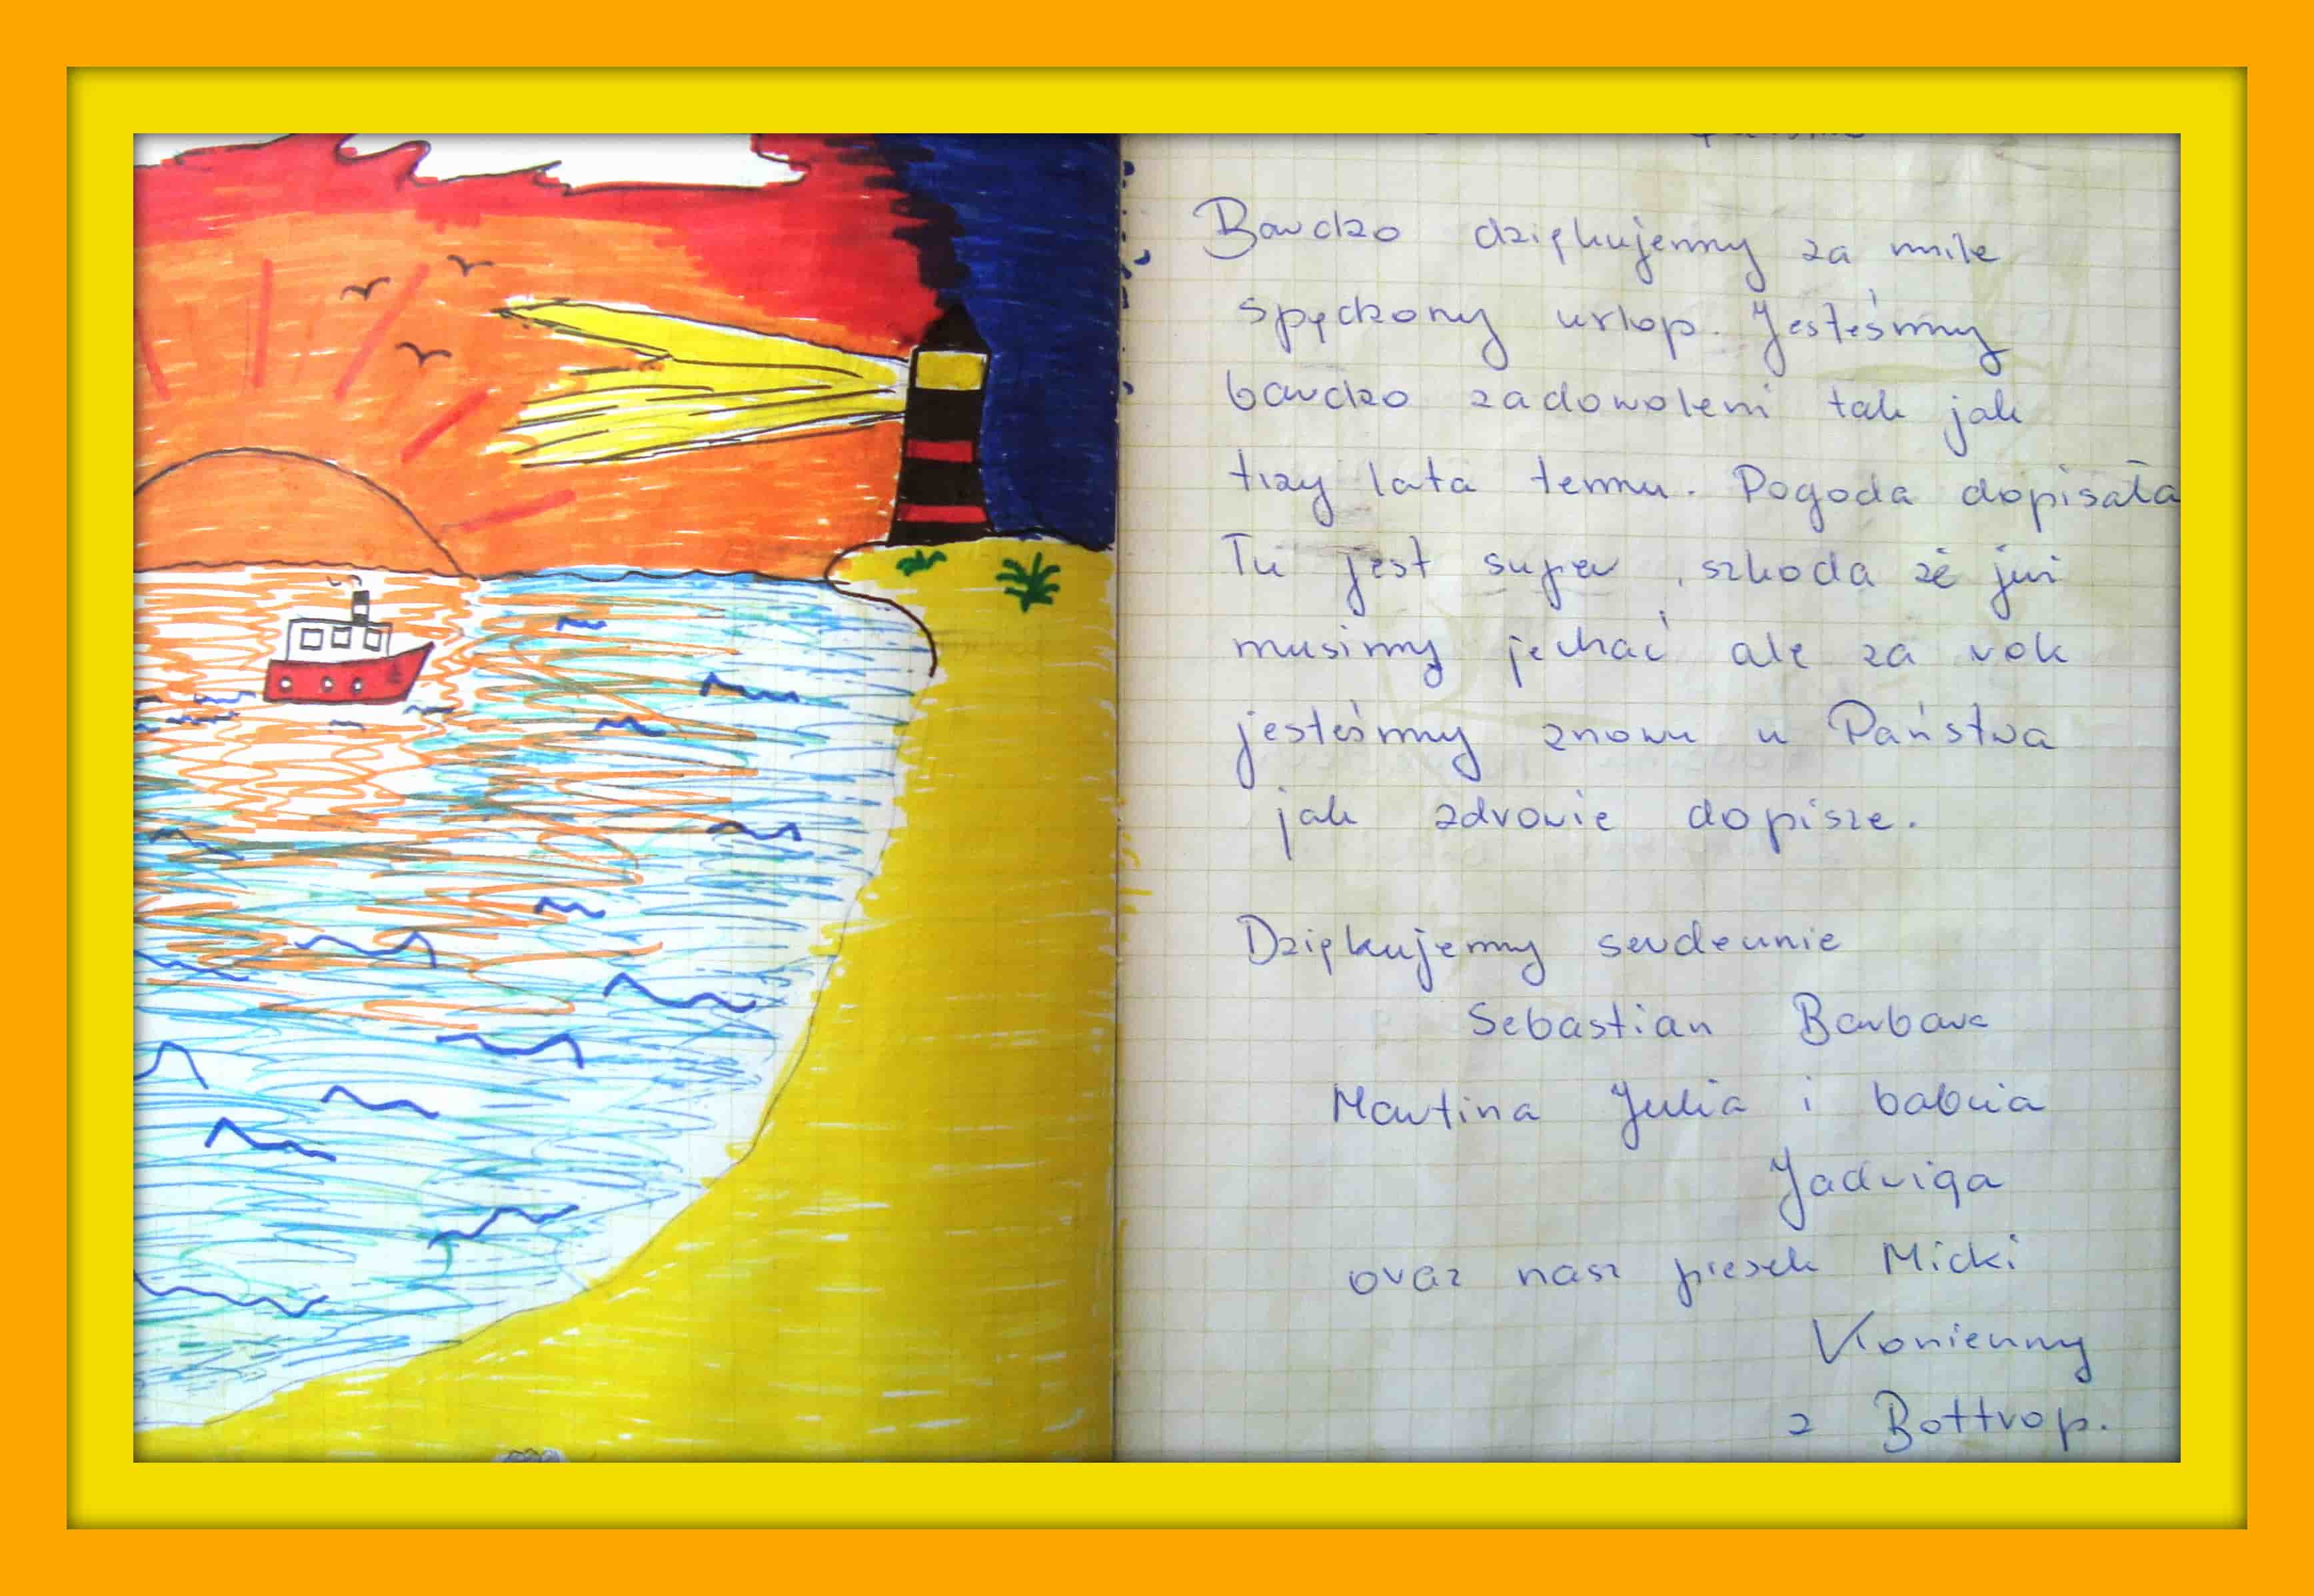 Bardzo dziękujemy za mile
spędzony urlop. Jesteśmy
bardzo zadowoleni tak jak
trzy lata temu. Pogoda dopisała
Tu jest super, szkoda że już
musimy jechać ale za rok
jesteśmy znowu u Państwa
jak zdrowie dopisze.
Dziękujemy serdecznie
Sebastian Barbara
Martina Julia i babcia
Jadwiga
oraz nasz piesek Micki
z Bottrop.